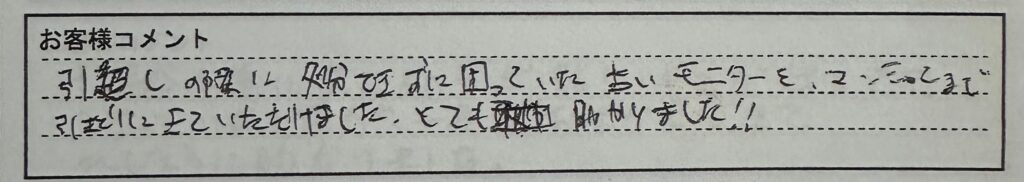 お客様コメント
引越しの際に処分できずに困っていた古いモニターを、マンションまで
引取りに来ていただけました。とても助かりました!!